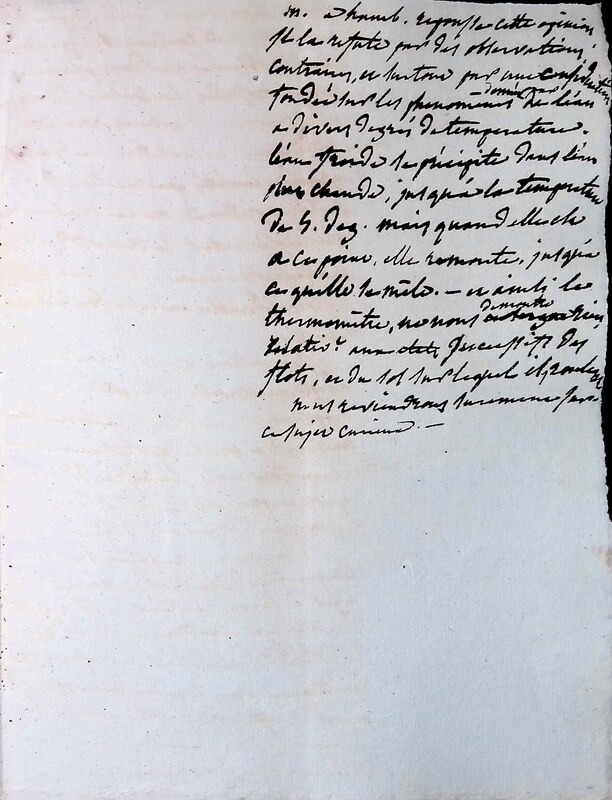 m. a humb. repousse cette opinion
et la refute par des observations
contraires, et surtout par une consideration
donnée par
fondée sur les phenomenes de l'eau
a divers degrés de temperature.
l'eau froide se précipite dans l'eau
plus chaude, jusqu'à la temperature
de 4. deg. mais quand elle
a ce point, elle remonte, jusqu'a
ce qu'elle se mêle. — et ainsi le
demontre
thermomètre, ne nous rien
relativt aux etats successifs des
flots, et du sol sur lequel ils roulent
nous reviendrons surement sur
ce sujet curieux. —